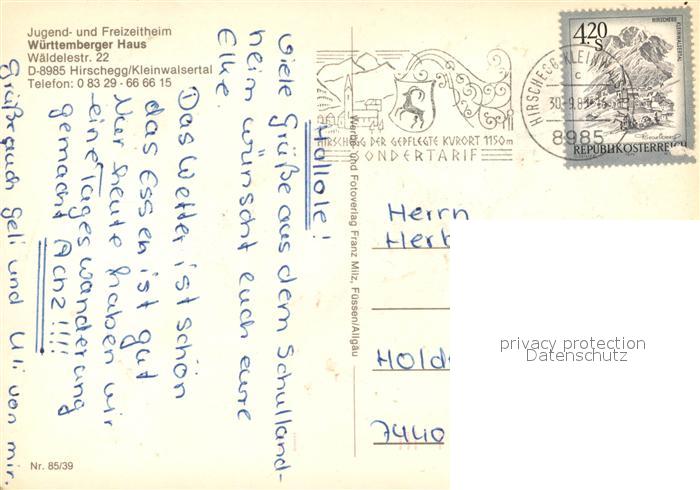 Jugend- und Freizeitheim
Württemberger Haus
Wäldelestr. 22
D-8985 Hirschegg/Kleinwalsertal
Telefon: 0 83 29 - 66 66 15
Hallole!
Viele Grüße aus dem Schulland-
heim wünscht euch eure
Elke.
Das Wetter ist schön
das Essen ist gut
Nur heute haben wir
eine Tageswanderung
gemacht Achz!!!!
Grüße auch Geli und Uli von mir.
Nr. 85/39
Werbe- und Fotoverlag Franz Milz, Füssen/Allgäu
HIRSCHEGG DER GEPFLEGTE KURORT 1150m
SONDERTARIF
HIRSCHEGG-KLEINW
c
30.-9.83
8985
4.20
S
HIRSCHEGG
KLEINWALSERTAL
REPUBLIK ÖSTERREICH
Herrn
Herb
Hold
7440
privacy protection
Datenschutz